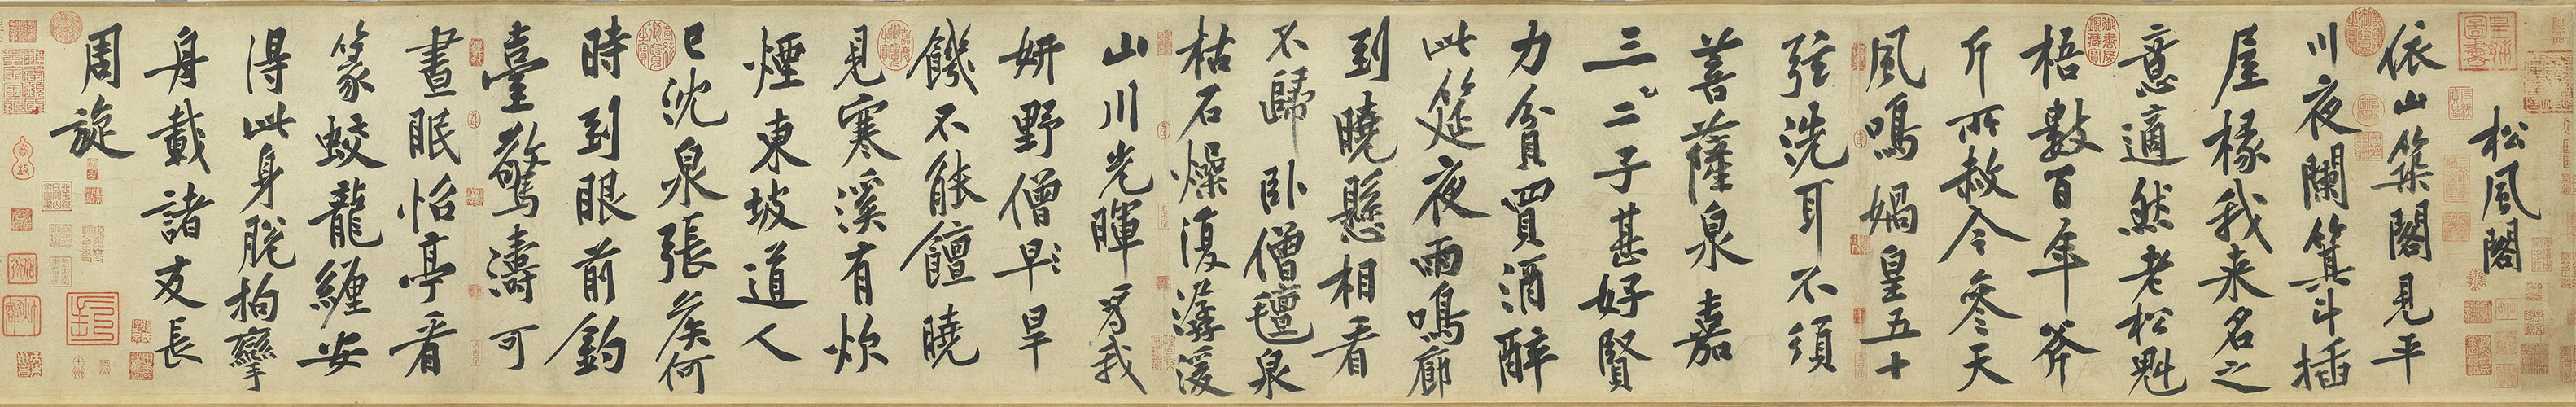 松風閣
依山築閣見平
川夜闌箕斗插
屋椽我来名之
意適然老松魁
梧數百年斧
斤所赦今參天
風鳴媧皇五十
弦洗耳不須
菩薩泉嘉
三二子甚好賢
力貧買酒醉
此筵夜雨鳴廊
到曉懸相看
不歸卧僧氈泉
枯石燥復潺湲
山川光暉為我
妍野僧早旱
饑不能饘曉
見寒溪有炊
煙東坡道人
已沈泉張侯何
時到眼前釣
臺驚濤可
晝眠怡亭看
篆蛟龍纏安
得此身脫拘攣
舟載諸友長
周旋